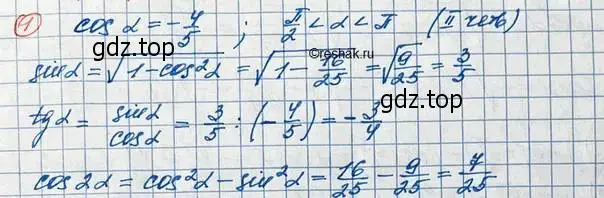 ① cos α = -4/5 ; π/2 < α < π (II четв)
©reshak.ru
sin α = √(1 - cos²α) = √(1 - 16/25) = √(9/25) = 3/5
gdz.top
gdz.top
tg α = sin α / cos α = 3/5 : (-4/5) = -3/4
gdz.top
cos 2α = cos²α - sin²α = 16/25 - 9/25 = 7/25